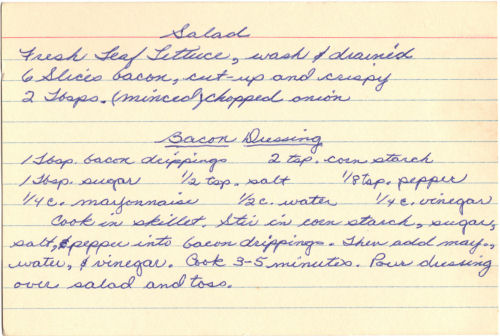 Salad
Fresh Leaf Lettuce, wash & drained
6 Slices bacon, cut up and crispy
2 Tbsps. (minced) chopped onion
Bacon Dressing
1 Tbsp. bacon drippings 2 tsp. corn starch
1 Tbsp. sugar 1/2 tsp. salt 1/8 tsp. pepper
1/4 c. mayonnaise 1/2 c. water 1/4 c. vinegar
Cook in skillet. Stir in corn starch, sugar,
salt, & pepper into bacon drippings. Then add may.,
water, & vinegar. Cook 3-5 minutes. Pour dressing
over salad and toss.